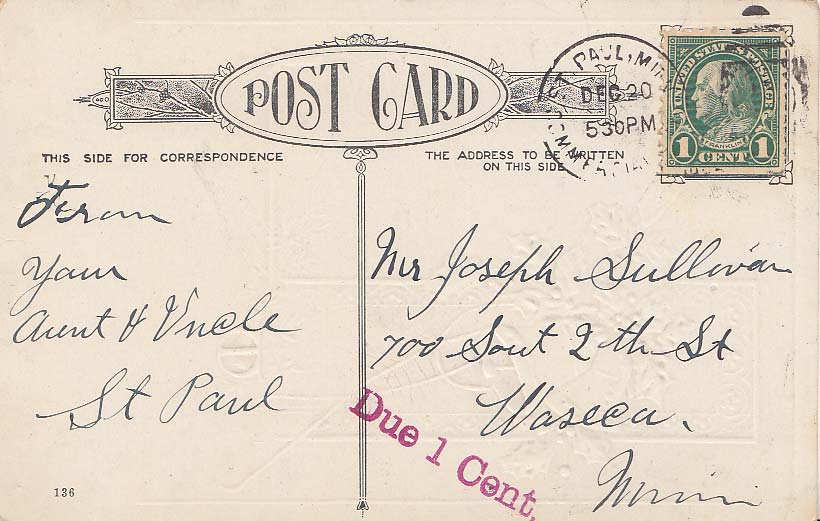 POST CARD
THIS SIDE FOR CORRESPONDENCE
THE ADDRESS TO BE WRITTEN
ON THIS SIDE
ST. PAUL, MIN
DEC 20
530 PM
UNITED STATES POSTAGE
FRANKLIN
1 CENT 1
From
Your
Aunt & Uncle
St Paul
Mr Joseph Sullivan
700 Sout 2 th St
Waseca.
Minn
Due 1 Cent.
136